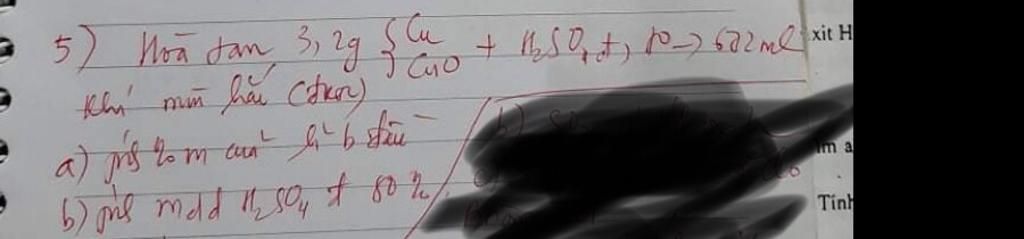 5) Hoà tan 3,2g { Cu + H₂SO₄ đ, to → 672ml
CuO
khí mùi hắc (đktc)
a) % m của h² b đầu
b) mdd H₂SO₄ đ 80%
xit H
m a
Tính